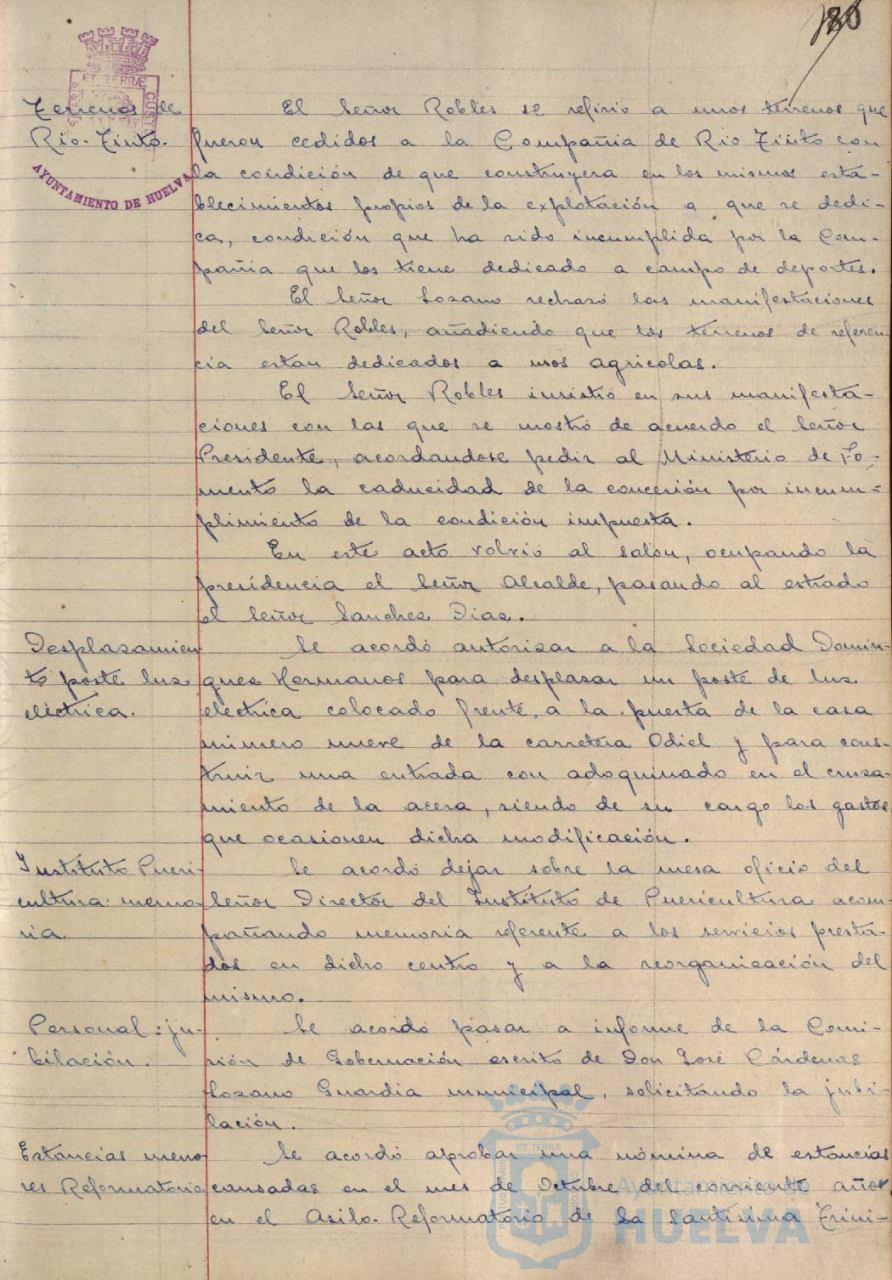 80
Terrenos de
Rio-Tinto.
AYUNTAMIENTO DE HUELVA
El Señor Robles se refirio a unos terrenos que
fueron cedidos a la Compañia de Rio Tinto con
la condición de que construyera en los mismos esta-
blecimientos propios de la explotación a que se dedi-
ca, condición que ha sido incumplida por la Com-
pañia que los tiene dedicado a campo de deportes.
El Señor Lozano rechazó las manifestaciones
del Señor Robles, añadiendo que los terrenos de referen-
cia estan dedicados a usos agricolas.
El Señor Robles insistió en sus manifesta-
ciones con las que se mostró de acuerdo el Señor
Presidente, acordandose pedir al Ministerio de Fo-
mento la caducidad de la concesión por incum-
plimiento de la condición impuesta.
En este acto volvió al salon, ocupando la
presidencia el Señor Alcalde, pasando al estrado
el Señor Sanchez Dias.
Desplasamien
to poste luz
eléctrica.
Se acordó autorizar a la Sociedad Domin-
guez Hermanos para desplazar un poste de luz
electrica colocado frente a la puerta de la casa
número nueve de la carretera Odiel y para cons-
truir una entrada con adoquinado en el cruza-
miento de la acera, siendo de su cargo los gastos
que ocasionen dicha modificación.
Instituto Pueri-
cultura: memo-
ria.
Se acordó dejar sobre la mesa oficio del
Señor Director del Instituto de Puericultura acom-
pañando memoria referente a los servicios presta-
dos en dicho centro y a la reorganización del
mismo.
Personal: ju-
bilación.
Se acordó pasar a informe de la Comi-
sión de Gobernación escrito de Don José Cárdenas
Lozano Guardia municipal, solicitando la jubi-
lación.
Estancias meno
res Reformatorio
Se acordó aprobar una nómina de estancias
causadas en el mes de Octubre del corriente año
en el Asilo-Reformatorio de la Santisima Trini-
Ayuntamiento de
HUELVA